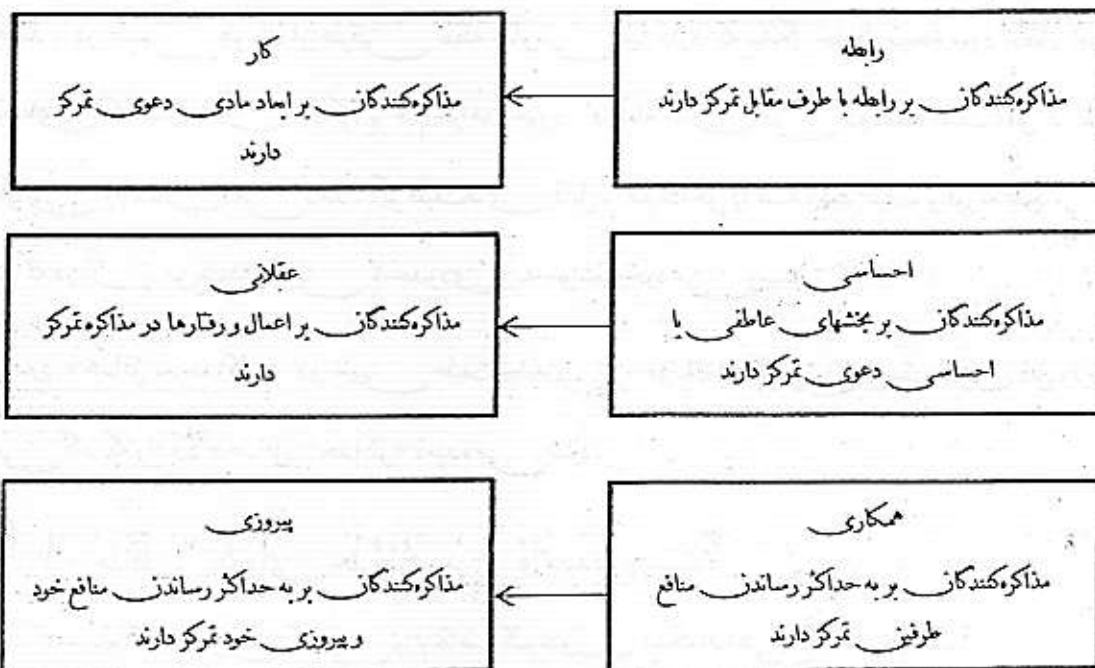 رابطه
مذاکره‌کنندگان بر رابطه با طرف مقابل تمرکز دارند
کار
مذاکره‌کنندگان بر ابعاد مادی دعوی تمرکز
دارند
احساسی
مذاکره‌کنندگان بر بخشهای عاطفی یا
احساسی دعوی تمرکز دارند
عقلانی
مذاکره‌کنندگان بر اعمال و رفتارها در مذاکره تمرکز
دارند
همکاری
مذاکره‌کنندگان بر به حداکثر رساندن منافع
طرفین تمرکز دارند
پیروزی
مذاکره‌کنندگان بر به حداکثر رساندن منافع خود
و پیروزی خود تمرکز دارند